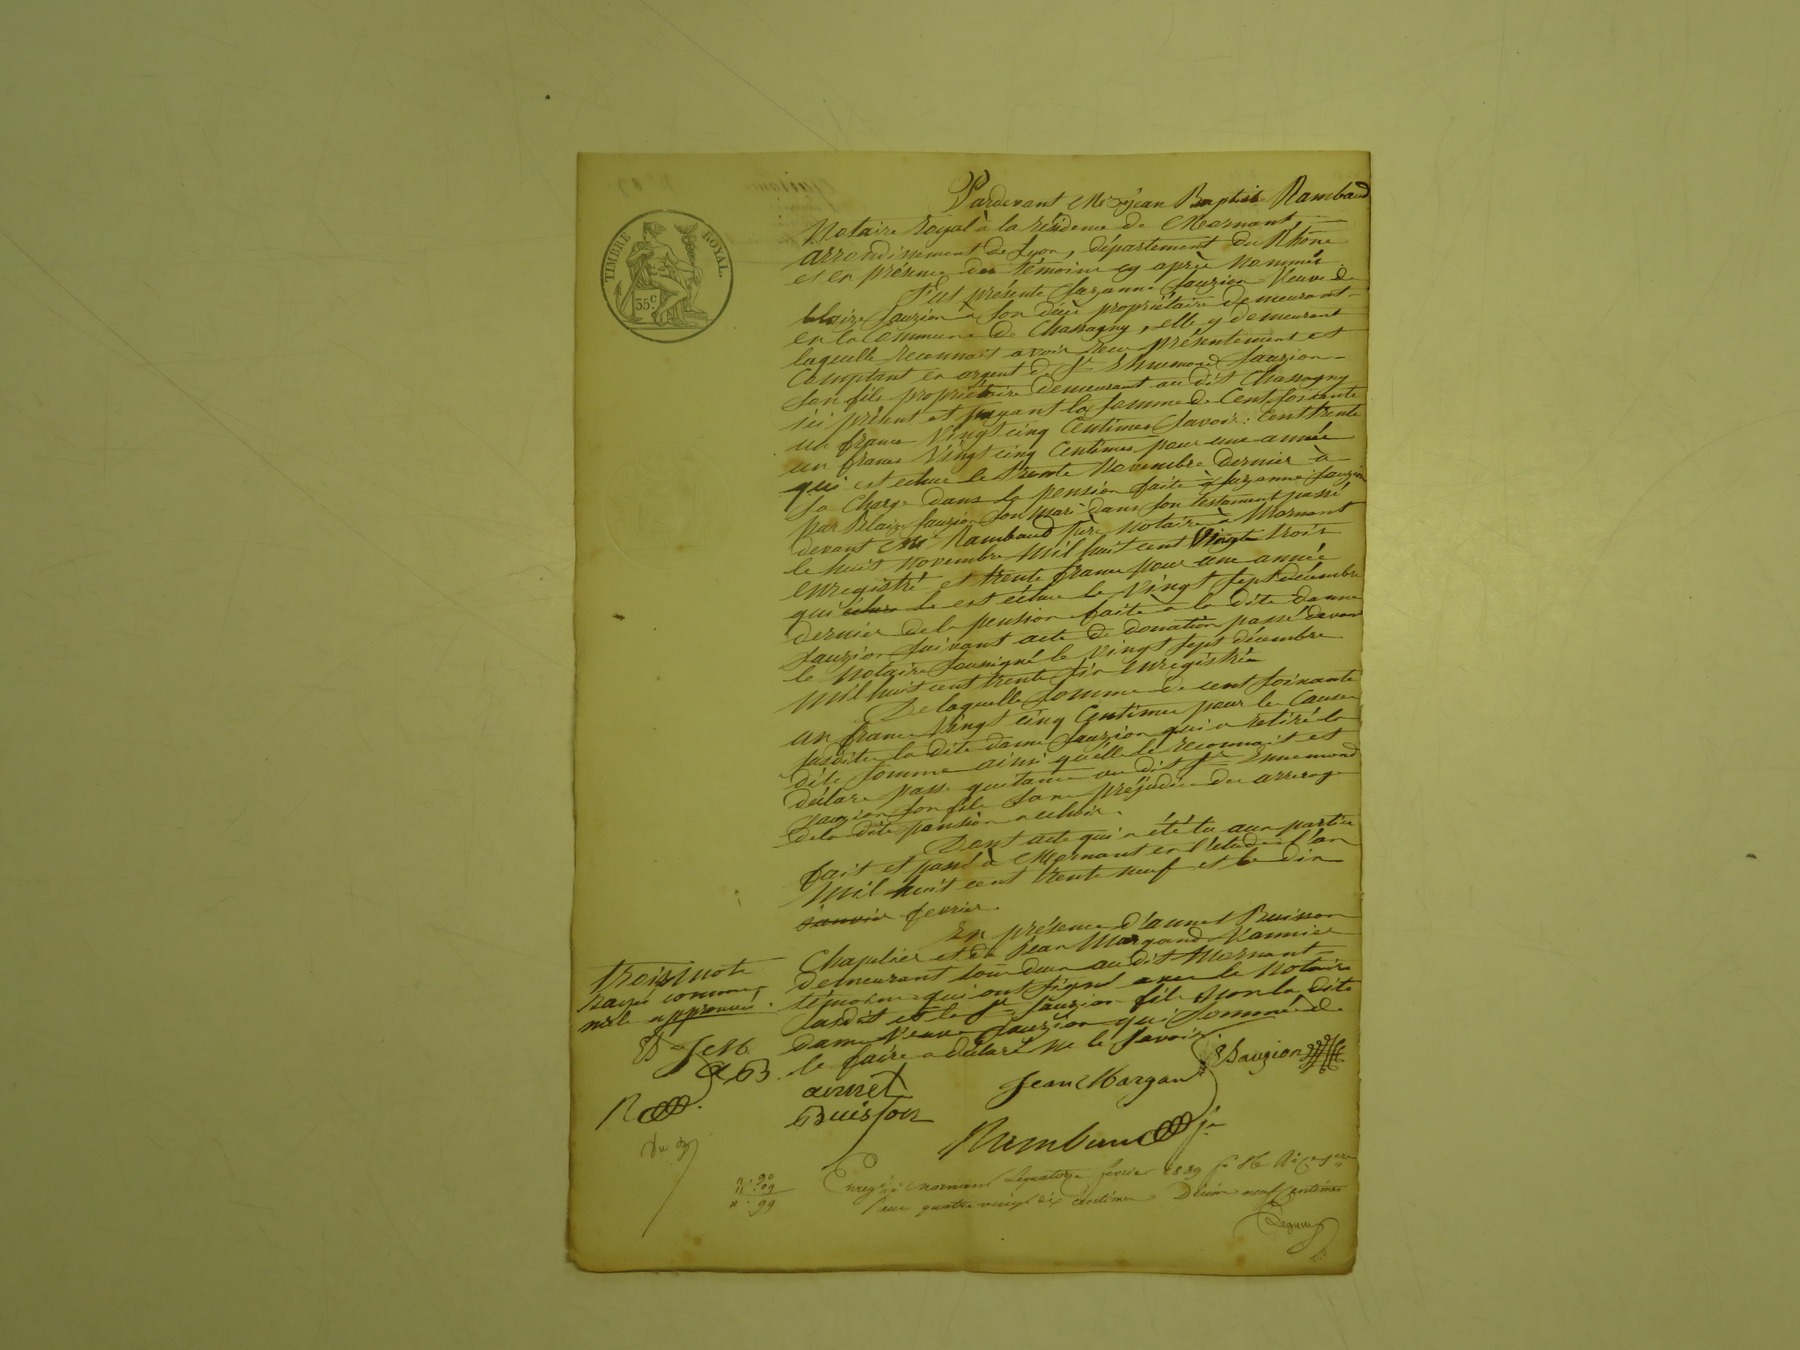 Pardevant Me Jean Baptiste Rambaud
Notaire Royal à la résidence de Mornant
arrondissement de Lyon, département du Rhône
et en présence des témoins cy après nommés
TIMBRE ROYAL.
35 c
Fut présente Suzanne Sauzion Veuve de
Blaise Sauzion à son décè propriétaire demeurant
en la commune de Chassagny, elle y demeurant
laquelle reconnait avoir reçu présentement et
Comptant en argent de Sr Ennemond Sauzion
son fils propriétaire demeurant au dit Chassagny
ici présent et payant la somme de Cent soixante
un francs Vingt cinq Centimes Savoir: Cent trente
un francs Vingt cinq Centimes pour une année
qui est echue le trente Novembre dernier à
sa Charge dans la pension faite à Suzanne Sauzion
par Blaise Sauzion son mari dans son testament passé
devant Me Rambaud Père Notaire à Mornant
le huit Novembre Mil huit cent Vingt trois
enregistré et trente francs pour une année
qui le est échue le Vingt sept décembre
dernier de la pension faite à la dite dame
Sauzion suivant acte de donation passé devant
le Notaire soussigné le Vingt sept décembre
Mil huit cent trente six enregistrée
De laquelle somme de cent soixante
un francs Vingt cinq Centimes pour les Causes
susdites la dite dame Sauzion qui a retiré la
dite somme ainsi qu'elle le reconnait et
déclare passe quitance au dit Sr Ennemond
Sauzion son fils sans préjudice des arrerage
de la dite pension a echoir.
Dont acte qui a été lu aux parties
fait et passé à Mornant en l'étude l'an
Mil huit cent trente neuf et le dix
Janvier fevrier.
En présence d'aunet Buisson
Chapelier et de Jean Margand Vannier
demeurant tous deux au dit Mornant
témoins qui ont signé avec le Notaire
susdit et le Sr Sauzion fils non la dite
dame Veuve Sauzion qui sommée de
le faire a déclaré ne le savoir
trois mots
rayés comme
nuls approuvés.
aunet
Buisson
Jean Margan
Sauzion
Rambaud
Du
90
09
99
Enregé à Mornant le quatorze fevrier 1839
quatre vingt dix centimes Décime neuf centimes